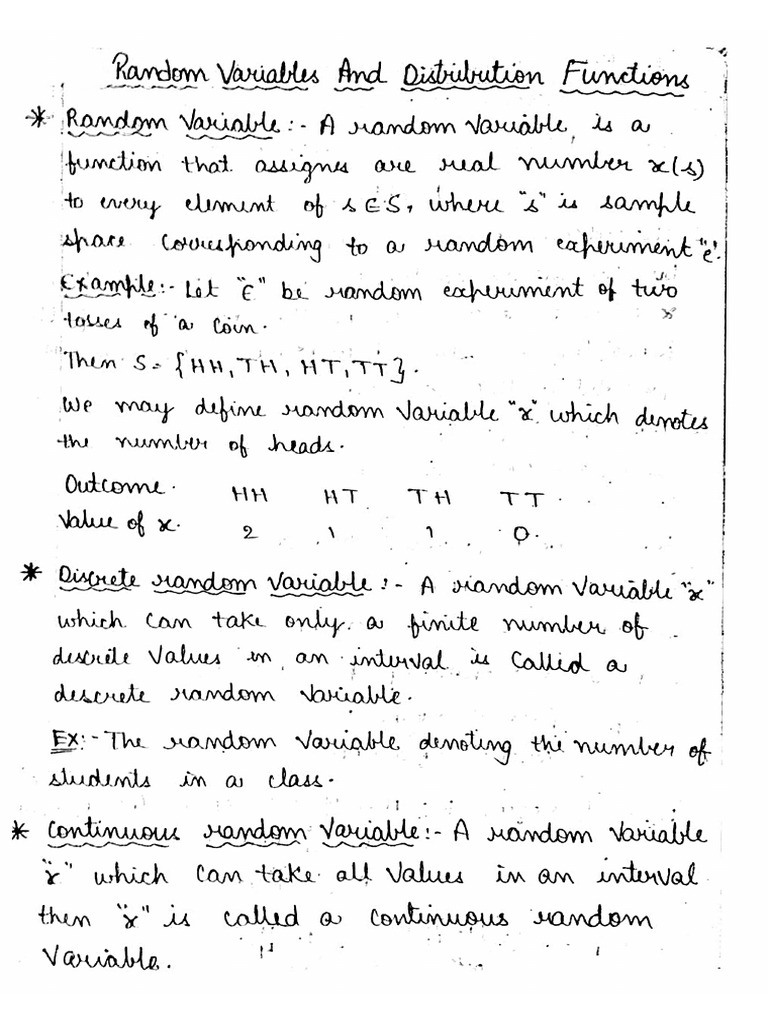 Random Variables And Distribution Functions
* Random Variable :- A random variable, is a
function that assignes are real number x(s)
to every element of s ∈ S, where "s" is sample
space corresponding to a random experiment "ε".
Example:- Let "ε" be random experiment of two
tosses of a coin.
Then S = {HH, TH, HT, TT}.
We may define random variable "x" which denotes
the number of heads.
Outcome. HH HT TH TT
Value of x. 2 1 1 0.
* Discrete random variable :- A random variable "x"
which can take only a finite number of
descrete values in an interval is called a
descrete random variable.
Ex:- The random variable denoting the number of
students in a class.
* Continuous random variable :- A random variable
"x" which can take all values in an interval
then "x" is called a continuous random
variable.